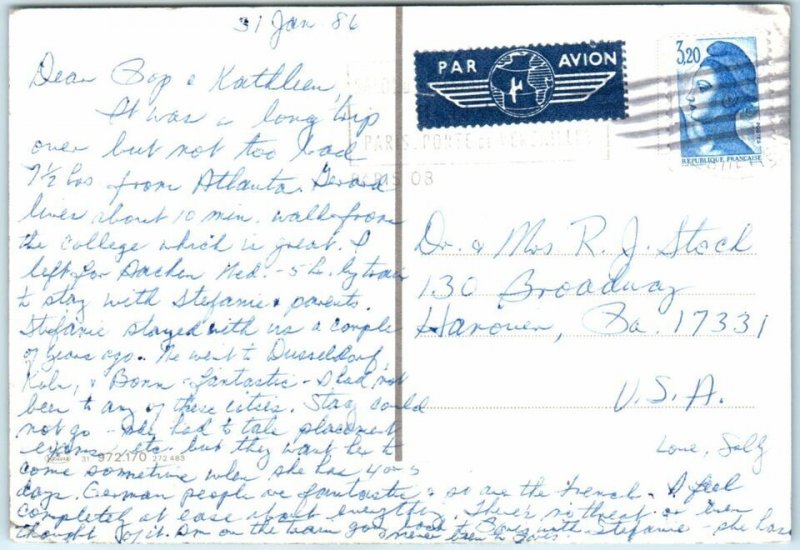 31 Jan 86
Dear Pop & Kathleen,
It was a long trip
over but not too bad
7½ hrs from Atlanta. Gerard
lives about 10 min. walk from
the college which is great. I
left for Aachen Wed. - 5 hr. by train
to stay with Stefanie & parents.
Stefanie stayed with us a couple
of years ago. We went to Dusseldorf,
Koln, & Bonn - fantastic - I had not
been to any of these cities. Stacy could
not go - she had to take placement
exams, etc. but they want her to
come sometime when she has 4 or 5
days. German people are fantastic & so are the French. I feel
completely at ease about everything. There's no threat or even
thought of it. Am on the train going back to Paris with Stefanie - she has
never been to Paris.
Love, Sally
31 972.170 272 483
PAR AVION
3,20
RÉPUBLIQUE FRANÇAISE
PARIS. PORTE DE VERSAILLES
PARIS 08
Dr. & Mrs R. J. Stock
130 Broadway
Hanover, Pa. 17331
U.S.A.